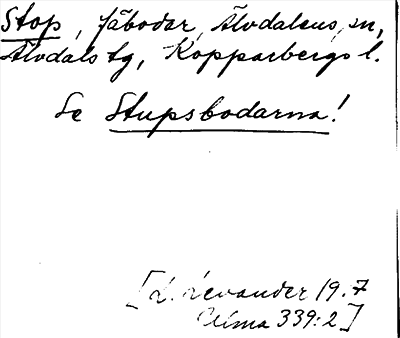 Stop, fäbodar, Älvdalens sn,
Älvdals tg, Kopparbergs l.
Se Stupsbodarna!
[L. Levander 19.7
Ulma 339:2]